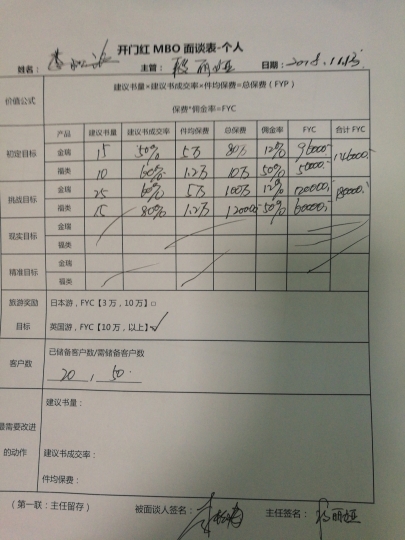 开门红 MBO 面谈表-个人
姓名： 主管： 丽娅 日期：2018.11.13
价值公式 建议书量×建议书成交率×件均保费=总保费（FYP）
保费*佣金率=FYC
产品 建议书量 建议书成交率 件均保费 总保费 佣金率 FYC 合计 FYC
初定目标 金瑞 15 50% 5万 80万 12% 96000 146000
福类 10 60% 1.2万 10万 50% 50000
挑战目标 金瑞 25 60% 5万 100万 12% 120000 180000
福类 15 80% 1.2万 120000 50% 60000
现实目标 金瑞
福类
精准目标 金瑞
福类
旅游奖励 日本游，FYC【3万，10万】□
目标 英国游，FYC【10万，以上】✓
客户数 已储备客户数/需储备客户数
20 , 50
最需要改进的动作 建议书量：
建议书成交率：
件均保费：
（第一联：主任留存） 被面谈人签名： 主任签名： 丽娅